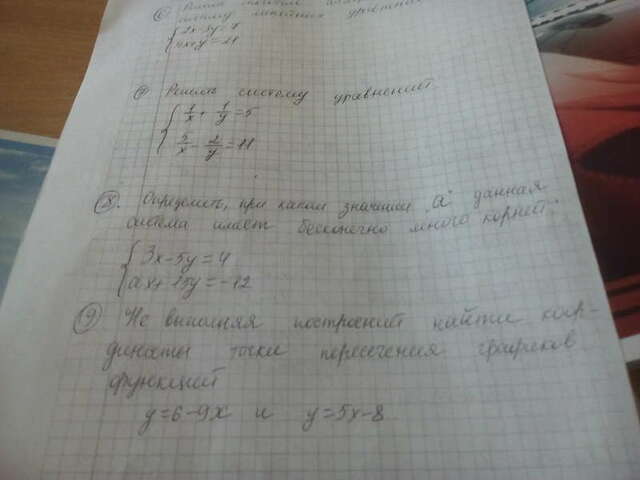 ⑥ Решить
систему линейных уравнений
{2x-3y=7
{4x+y=21
⑦ Решить систему уравнений.
{1/x + 1/y = 5
{5/x - 2/y = 11
⑧. Определить, при каком значении "a" данная
система имеет бесконечно много корней.
{3x-5y=4
{ax+15y=-12
⑨ Не выполняя построений найти коор-
динаты точки пересечения графиков
функций
y=6-9x и y=5x-8